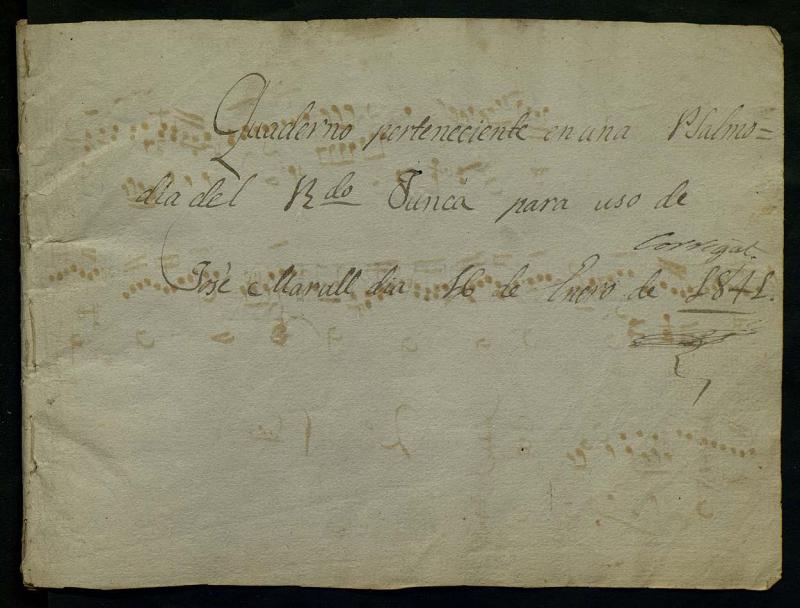 Quaderno perteneciente en una Psalmo=
dia del Rdo Juncà para uso de
Corregat.
José Marull dia 16 de Enero de 1841.